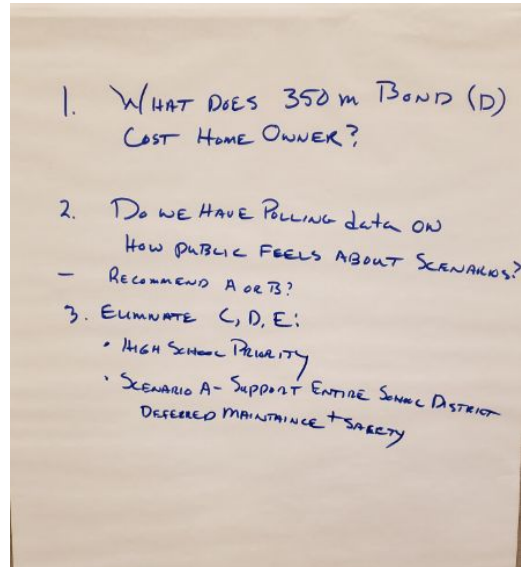 1. WHAT DOES 350 m BOND (D)
COST HOME OWNER?
2. DO WE HAVE POLLING data ON
HOW PUBLIC FEELS ABOUT SCENARIOS?
- RECOMMEND A OR B?
3. ELIMNATE C, D, E:
• HIGH SCHOOL PRIORITY
• SCENARIO A - SUPPORT ENTIRE SCHOOL DISTRICT
DEFERRED MAINTAINCE + SAFETY